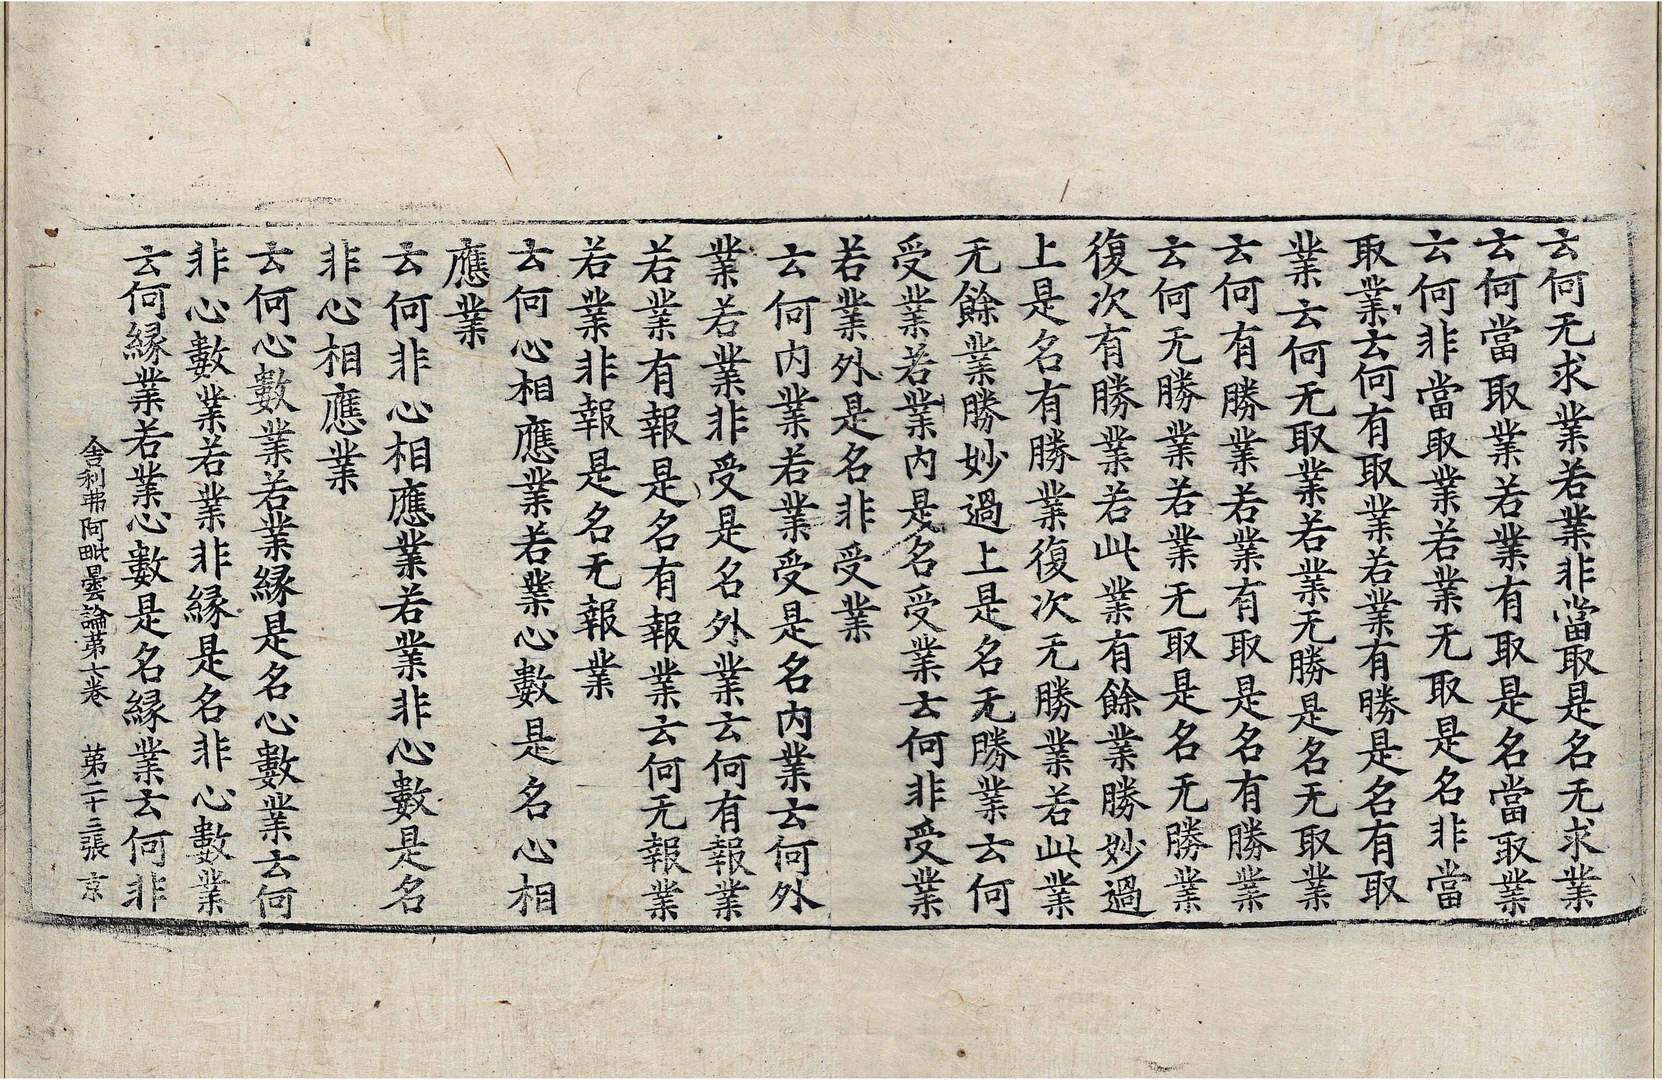 云何无求業若業非當取是名无求業
云何當取業若業有取是名當取業
云何非當取業若業无取是名非當
取業云何有取業若業有勝是名有取
業云何无取業若業无勝是名无取業
云何有勝業若業有取是名有勝業
云何无勝業若業无取是名无勝業
復次有勝業若此業有餘業勝妙過
上是名有勝業復次无勝業若此業
无餘業勝妙過上是名无勝業云何
受業若業内是名受業云何非受業
若業外是名非受業
云何内業若業受是名内業云何外
業若業非受是名外業云何有報業
若業有報是名有報業云何无報業
若業非報是名无報業
云何心相應業若業心數是名心相
應業
云何非心相應業若業非心數是名
非心相應業
云何心數業若業緣是名心數業云何
非心數業若業非緣是名非心數業
云何緣業若業心數是名緣業云何非
舍利弗阿毗曇論苐七卷 苐二十三張 京